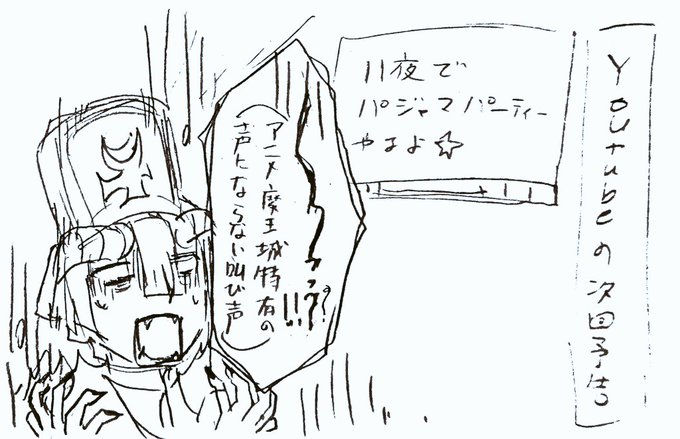 Youtubeの次回予告
11夜で
パジャマパーティー
やるよ☆
!!??
(アニメ魔王城特有の
声にならない叫び声)